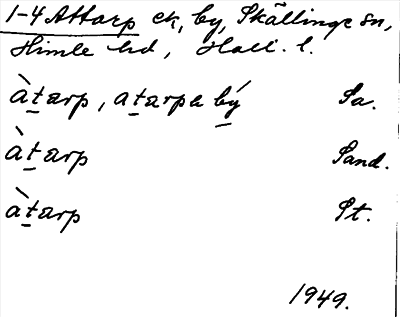 1-4 Attarp ek, by, Skällinge sn,
Himle hd, Hall. l.
àtarp, atarpa bý Sa.
àtarp Sand.
àtarp St.
1949.